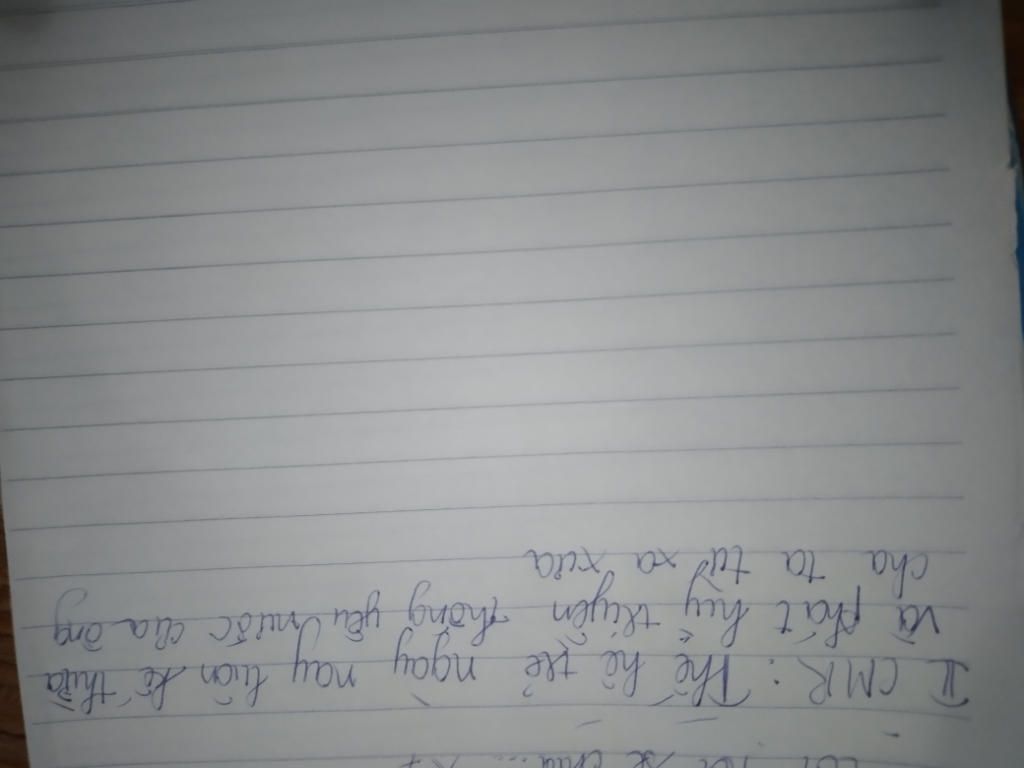 II CMR: Thế hệ trẻ ngày nay luôn kế thừa
và phát huy truyền thống yêu nước của ông
cha ta từ xa xưa